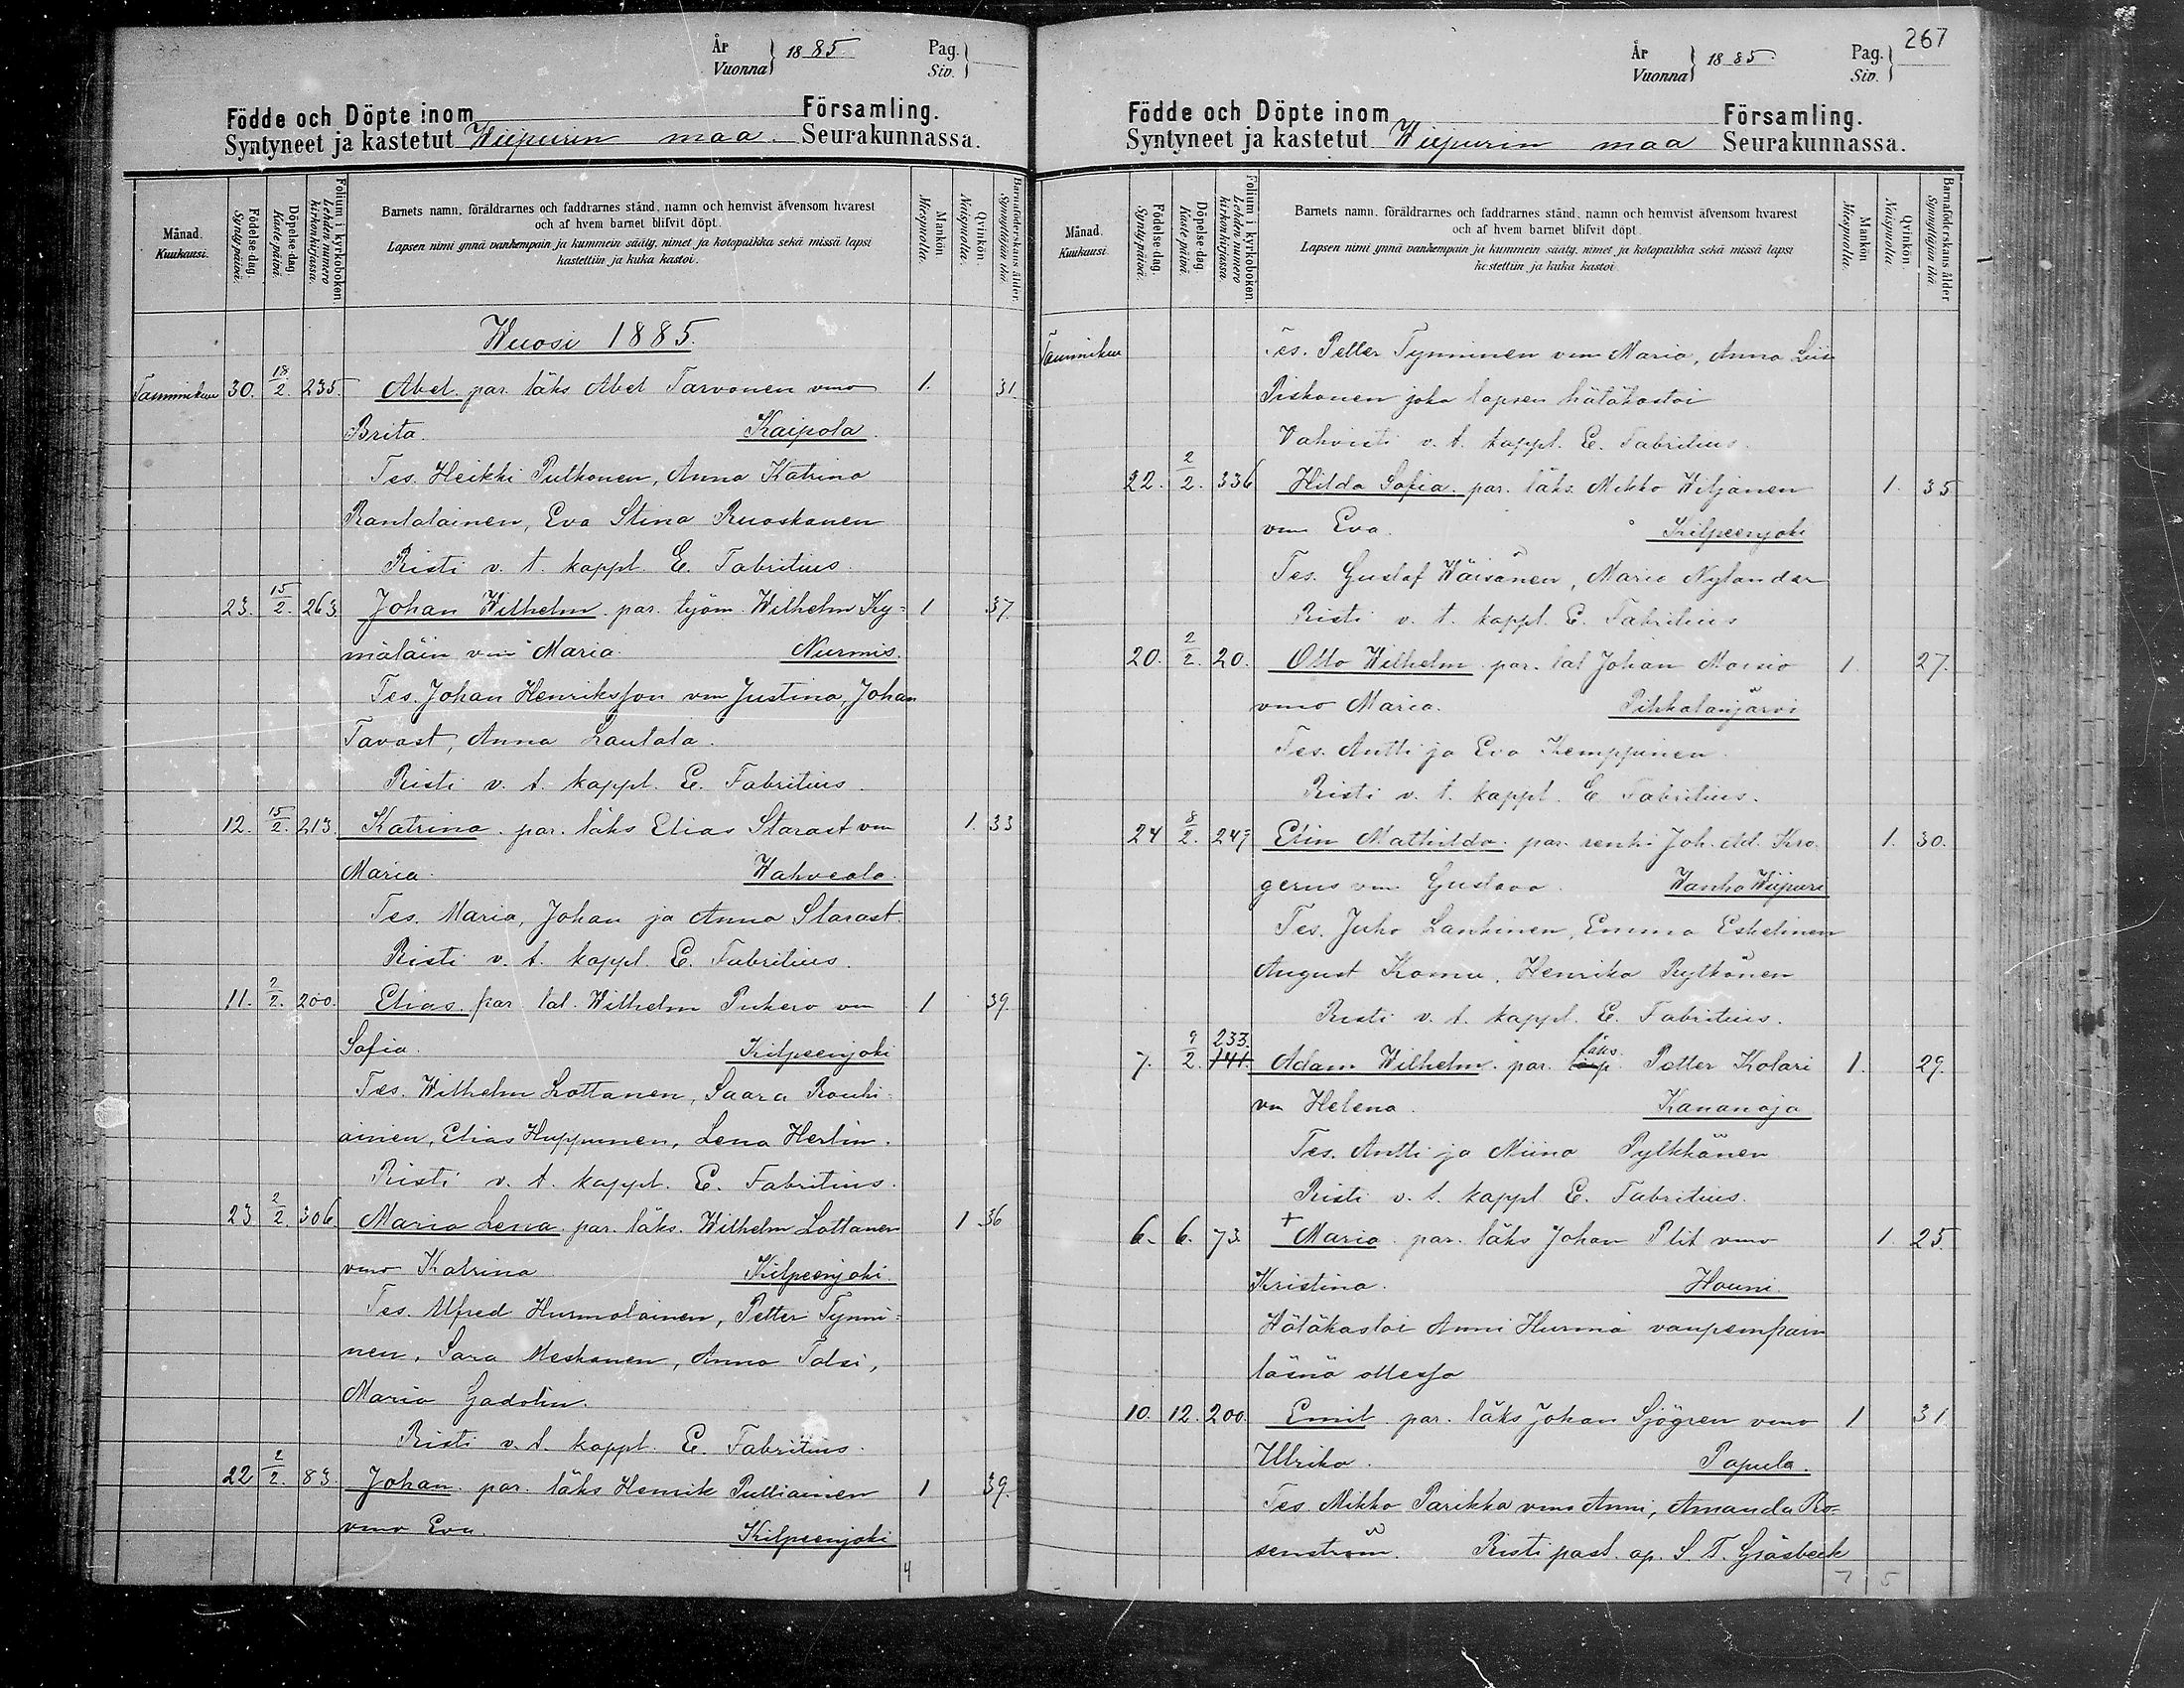 År
Vuonna } 1885.
Pag.
Siv. }
Födde och Döpte inom Församling.
Syntyneet ja kastetut Wiipurin maa. Seurakunnassa.
Månad.
Kuukausi.
Födelse-dag.
Syntypäivä.
Döpelse-dag.
Kaste päivä.
Folium i kyrkoboken.
Lehden numero kirkonkirjassa.
Barnets namn, föräldrarnes och faddrarnes stånd, namn och hemvist äfvensom hvarest
och af hvem barnet blifvit döpt.
Lapsen nimi ynnä vanhempain ja kummein sääty, nimet ja kotopaikka sekä missä lapsi
kastettiin ja kuka kastoi.
Mankön.
Miespuolia.
Qvinkön.
Naispuolia.
Barnaföderskans ålder.
Synnyttäjän ikä.
Wuosi 1885.
Tammikuu 30. 18/2. 235. Abel. par. läks Abel Tarvonen vmo 1. 31.
Brita. Kaipola.
Tes. Heikki Putkonen, Anna Katrina
Rantalainen, Eva Stina Ruoskanen
Risti v. t. kappl. E. Fabritius.
23. 15/2. 263 Johan Wilhelm. par. työm. Wilhelm Ky= 1 37.
mäläin vm Maria. Nurmis.
Tes. Johan Henriksson vm Justina, Johan
Tavast, Anna Lautala.
Risti v. t. kappl. E. Fabritius.
12. 15/2. 213. Katrina. par. läks Elias Starast vm 1. 33
Maria. Wahvealo.
Tes. Maria, Johan ja Anna Starast.
Risti v. t. kappl. E. Fabritius.
11. 2/2. 200. Elias. par. tal. Wilhelm Pukero vm 1 39.
Sofia. Kilpeenjoki
Tes. Wilhelm Lottanen, Saara Rouhi=
ainen, Elias Huppunen, Lena Herlin.
Risti v. t. kappl. E. Fabritius.
23 2/2. 306 Maria Lena. par. läks. Wilhelm Lottanen 1 36
vmo Katrina Kilpeenjoki.
Tes. Alfred Hurmalainen, Petter Tynni=
nen, Sara Meskanen, Anna Talsi,
Maria Gadolin.
Risti v. t. kappl. E. Fabritius.
22 2/2. 83. Johan. par. läks Henrik Puttiainen 1 39.
vmo Eva Kilpeenjoki
4
267
År
Vuonna } 1885.
Pag.
Siv. }
Födde och Döpte inom Församling.
Syntyneet ja kastetut Wiipurin maa Seurakunnassa.
Månad.
Kuukausi.
Födelse-dag.
Syntypäivä.
Döpelse-dag.
Kaste päivä.
Folium i kyrkoboken.
Lehden numero kirkonkirjassa.
Barnets namn, föräldrarnes och faddrarnes stånd, namn och hemvist äfvensom hvarest
och af hvem barnet blifvit döpt.
Lapsen nimi ynnä vanhempain ja kummein sääty, nimet ja kotopaikka sekä missä lapsi
kastettiin ja kuka kastoi
Mankön
Miespuolia.
Qvinkön.
Naispuolia.
Barnaföderskans ålder
Synnyttäjän ikä
Tammikuu Tes. Petter Tynninen vm Maria, Anna Liis
Piskonen joka lapsen hätäkastoi
Vahvisti v. t. kappl. E. Fabritius.
22. 2/2. 336 Hilda Sofia. par. läks. Mikko Wiljanen 1. 35
vm Eva. Kilpeenjoki
Tes. Gustaf Wäisänen, Maria Nylander
Risti v. t. kappl. E. Fabritius
20. 2/2. 20. Otto Wilhelm. par. tal Johan Moisio 1. 27.
vmo Maria. Pihkalanjärvi
Tes. Antti ja Eva Kemppinen.
Risti v. t. kappl. E Fabritius.
24 8/2. 249 Elin Mathilda. par. renki Joh. Ad. Kro= 1. 30.
gerus vm Gustava. Wanha Wiipuri
Tes. Juho Lankinen, Emma Eskelinen
August Komu, Henrika Pylkönen
Risti v. t. kappl. E. Fabritius.
233.
läks.
7. 9/2. 141. Adam Wilhelm. par. Petter Kolari 1. 29.
vm Helena. Kananoja
Tes. Antti ja Miina Pylkkänen
Risti v. t. kappl E. Fabritius.
6. 6. 73. + Maria. par. läks Johan Plit vmo 1. 25.
Kristina. Houni.
Hätäkastoi Anni Hurma vanhempain
läsnä ollessa
10. 12. 200. Emil. par. läks Johan Sjögren vmo 1 31
Ulrika. Papula.
Tes Mikko Parikka vmo Anni, Amanda Ro=
senström. Risti past. ap. S. T. Gräsbeck
7 5